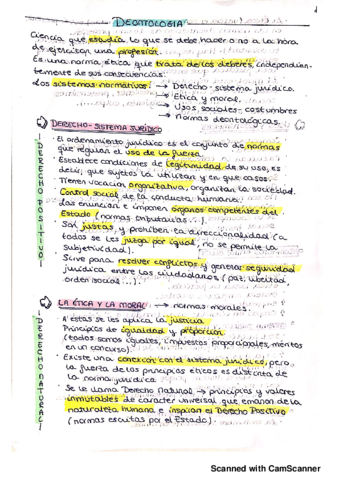 1
DEONTOLOGIA
Ciencia que estudia lo que se debe hacer o no a la hora
de ejercitar una profesión.
Es una norma ética que trata de los deberes, independien-
temente de sus consecuencias.
Los sistemas normativos: → Derecho - sistema jurídico.
→ Ética y moral.
→ Usos sociales - costumbres
→ Normas deontológicas.
DERECHO - SISTEMA JURÍDICO
DERECHO POSITIVO
· El ordenamiento jurídico es el conjunto de normas
que regulan el uso de la fuerza.
· Establece condiciones de legitimidad de su uso, es
decir, que sujetos la utilizan y en que casos.
· Tienen vocación organizativa, organizan la sociedad.
· Control social de la conducta humana.
· Las enuncian e imponen órganos competentes del
Estado (normas tributarias...).
· Son justas, y prohíben la direccionalidad (a
todos se les juzga por igual, no se permite la
subjetividad).
· Sirve para resolver conflictos y generar seguridad
jurídica entre los ciudadanos (paz, libertad,
orden social...).
LA ÉTICA Y LA MORAL → normas morales.
DERECHO NATURAL
· A éstas se les aplica la justicia.
Principios de igualdad y proporción
(todos somos iguales, impuestos proporcionales, méritos
en un concurso).
· Existe una conexión con el sistema jurídico, pero
la fuerza de los principios éticos es distinta de
la norma jurídica.
· Se le llama Derecho Natural → principios y valores
inmutables de carácter universal que emanan de la
naturaleza humana e inspiran el Derecho Positivo
(normas escritas por el Estado).
Scanned with CamScanner